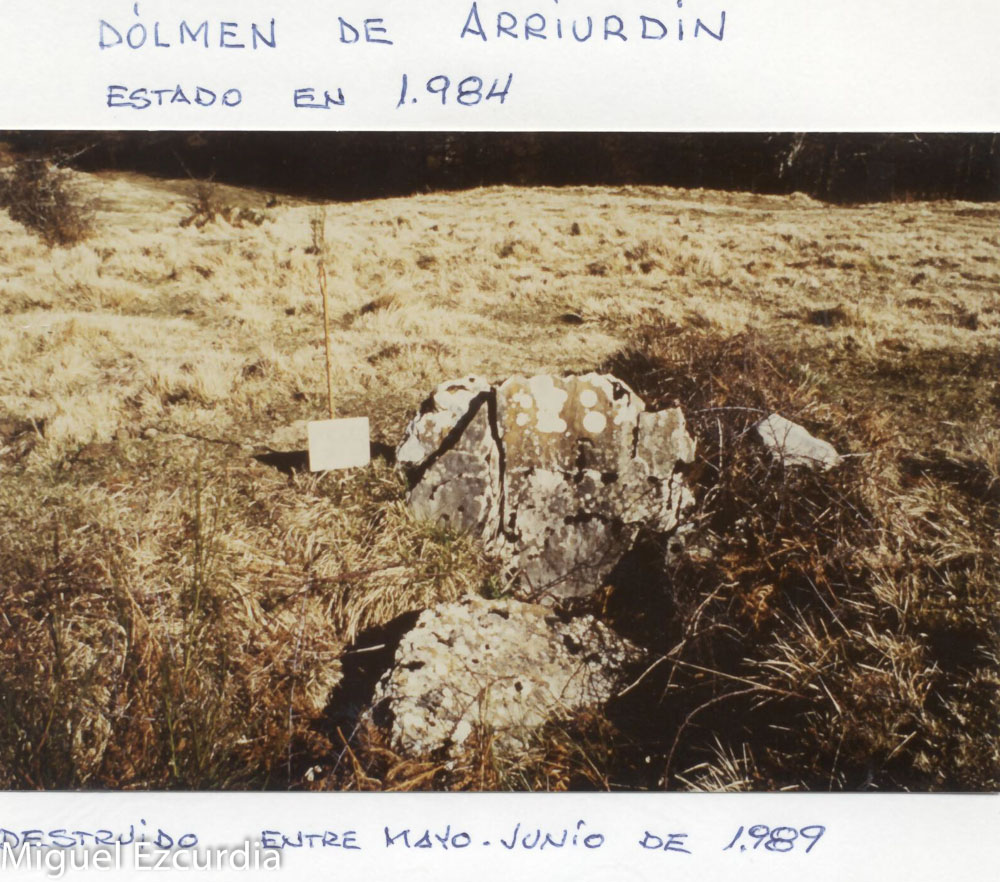 DÓLMEN DE ARRIURDIN
ESTADO EN 1.984
DESTRUIDO ENTRE MAYO-JUNIO DE 1.989
Miguel Ezcurdia